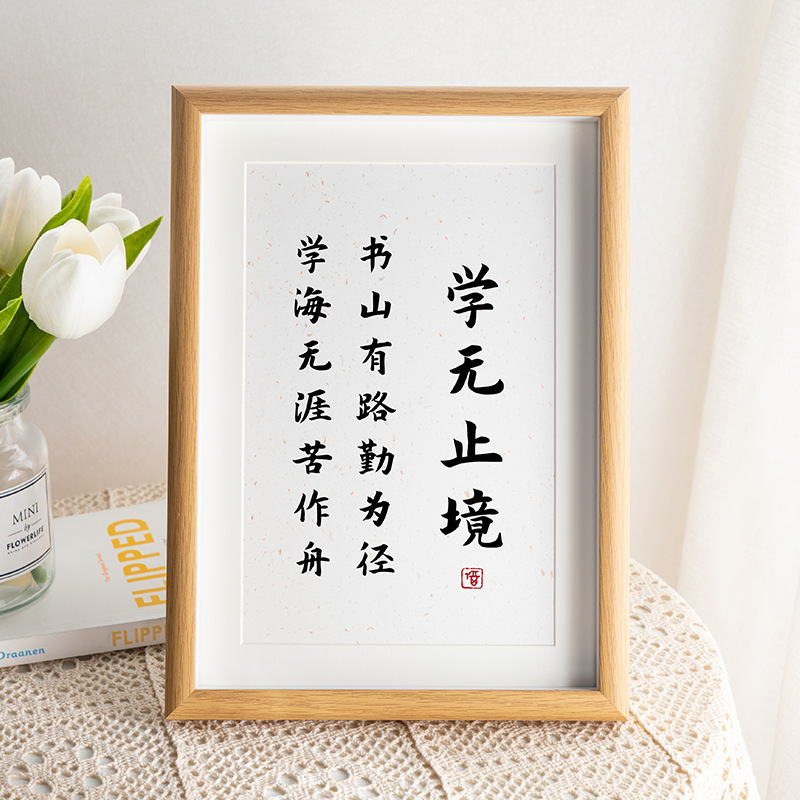 学无止境
书山有路勤为径
学海无涯苦作舟
MINI
by
FLOWERLIFE
FLIPPED
FLIPP
Draanen